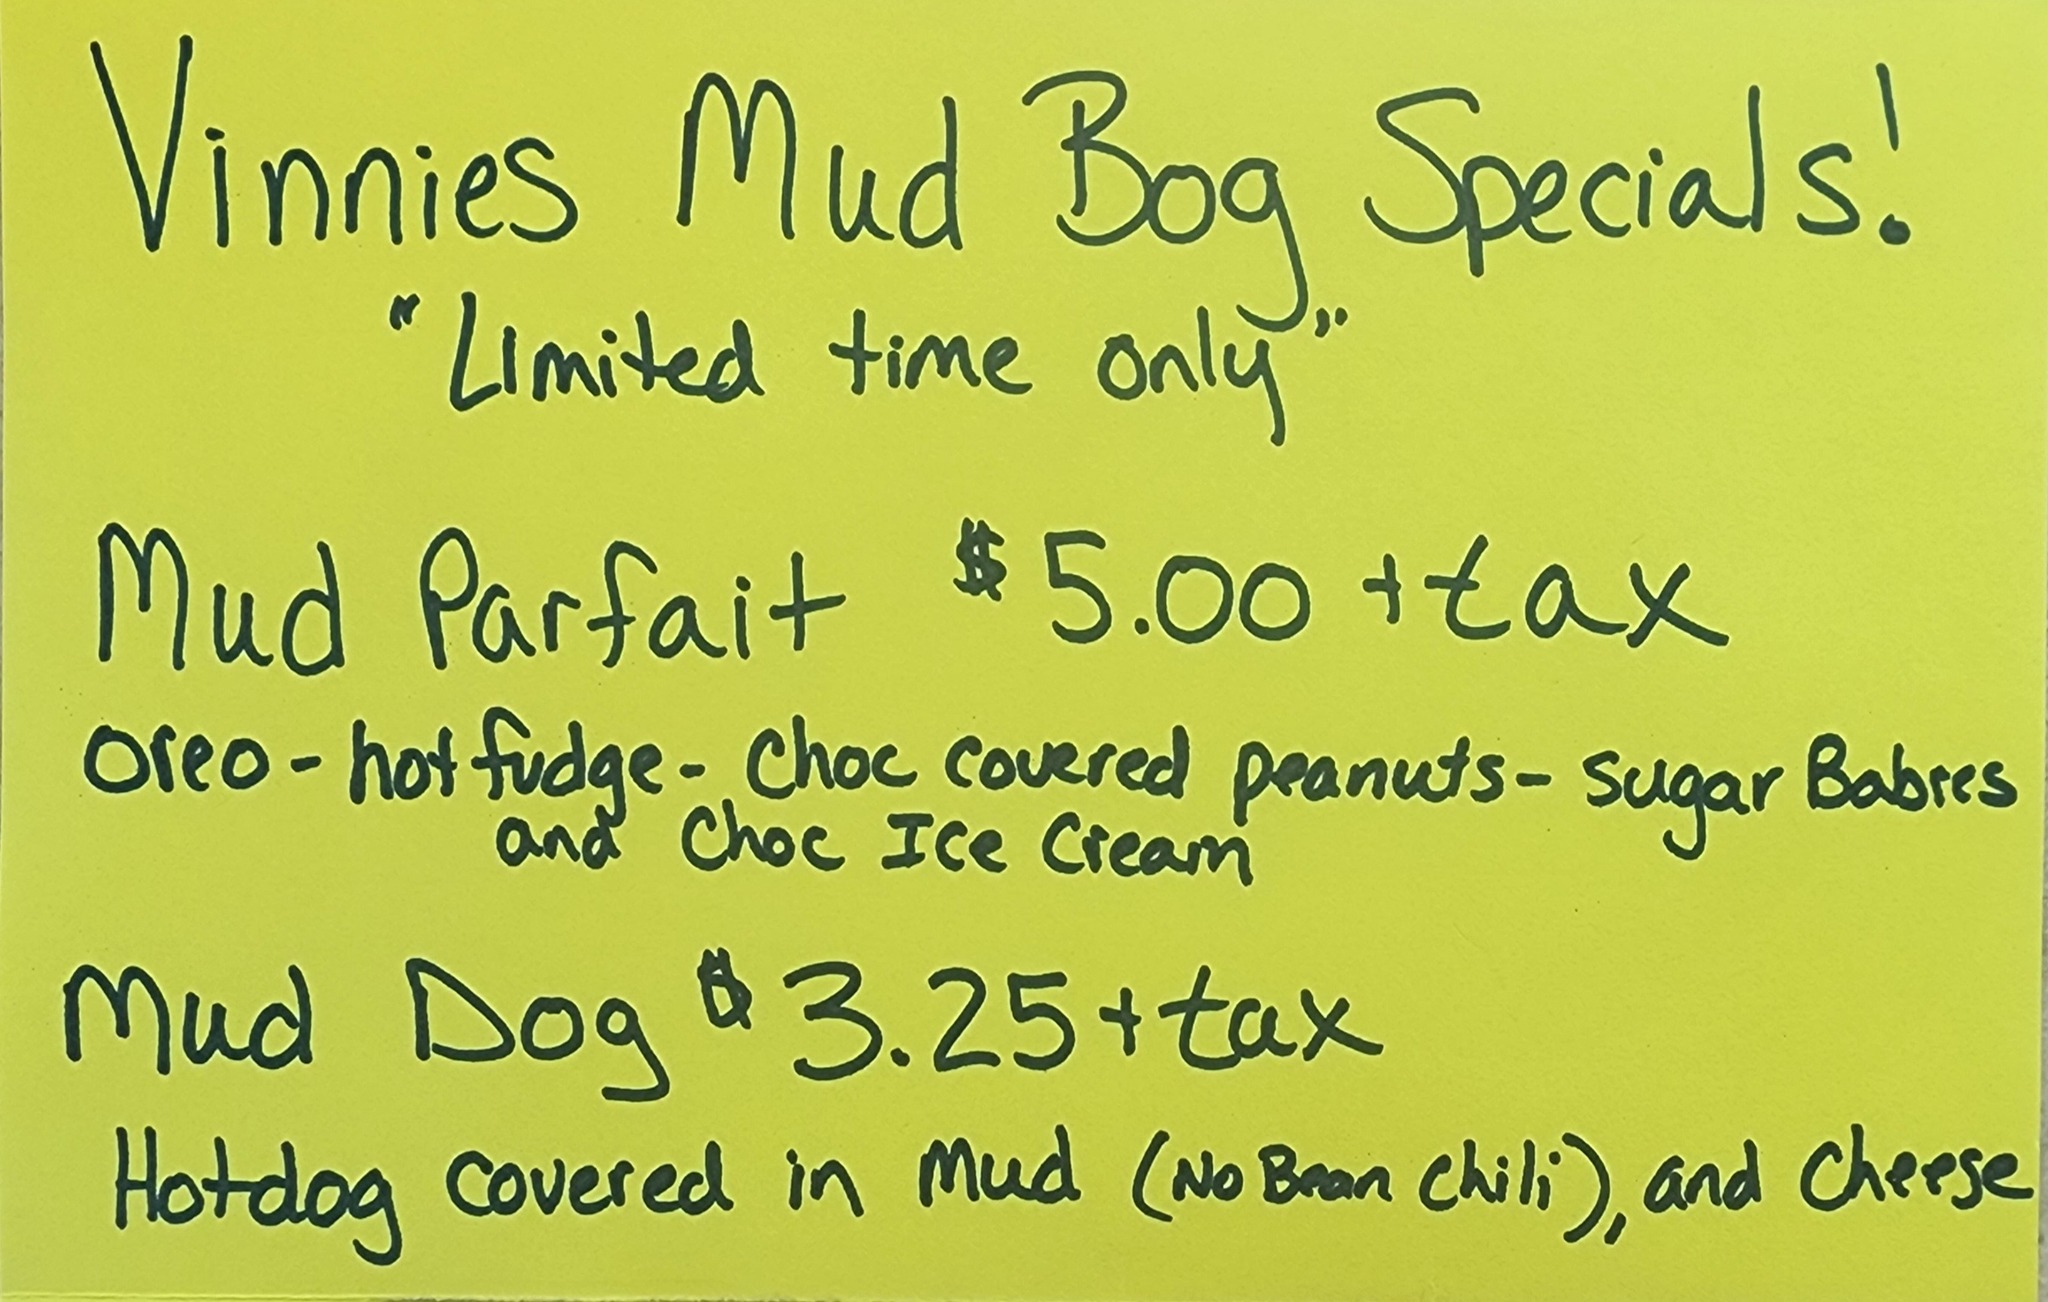 Vinnies Mud Bog Specials!
"Limited time only"
Mud Parfait $5.00 + tax
Oreo - hot fudge - Choc covered peanuts - Sugar Babies
and Choc Ice Cream
Mud Dog $3.25 + tax
Hotdog covered in Mud (No Bean Chili), and Cheese